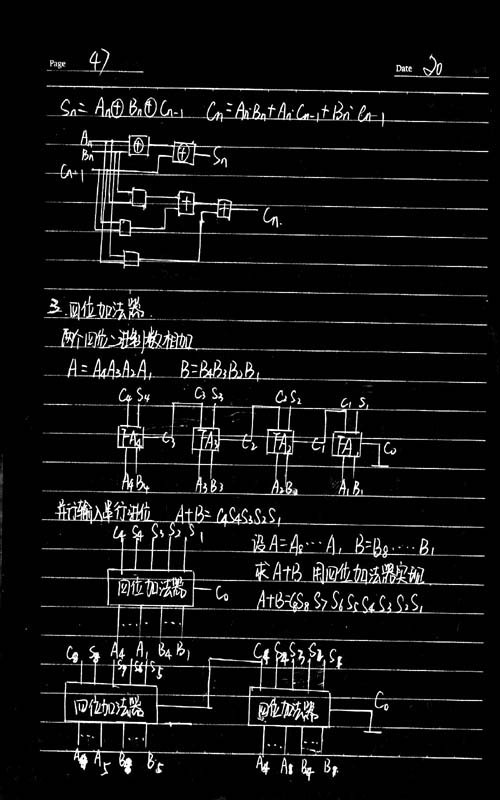 Page 47
Date 20
Sn = An⊕Bn⊕Cn-1 Cn = An·Bn+An·Cn-1+Bn·Cn-1
An
Bn
⊕ ⊕ Sn
Cn-1
+ + Cn
3. 四位加法器
两个四位二进制数相加
A = A4A3A2A1 B = B4B3B2B1
C4 S4 C3 S3 C2 S2 C1 S1
FA4 C3 FA3 C2 FA2 C1 FA1 C0
A4 B4 A3 B3 A2 B2 A1 B1
并行输入串行进位 A+B = C4S4S3S2S1
C4 S4 S3 S2 S1
设A=A8···A1 B=B8····B1
四位加法器 C0
求A+B 用四位加法器实现
A+B=C8S8S7S6S5S4S3S2S1
A4 A1 B4 B1
C8 S8 S7 S6 S5 C4 S4 S3 S2 S1
四位加法器 四位加法器 C0
A8 A5 B8 B5 A4 A1 B4 B1